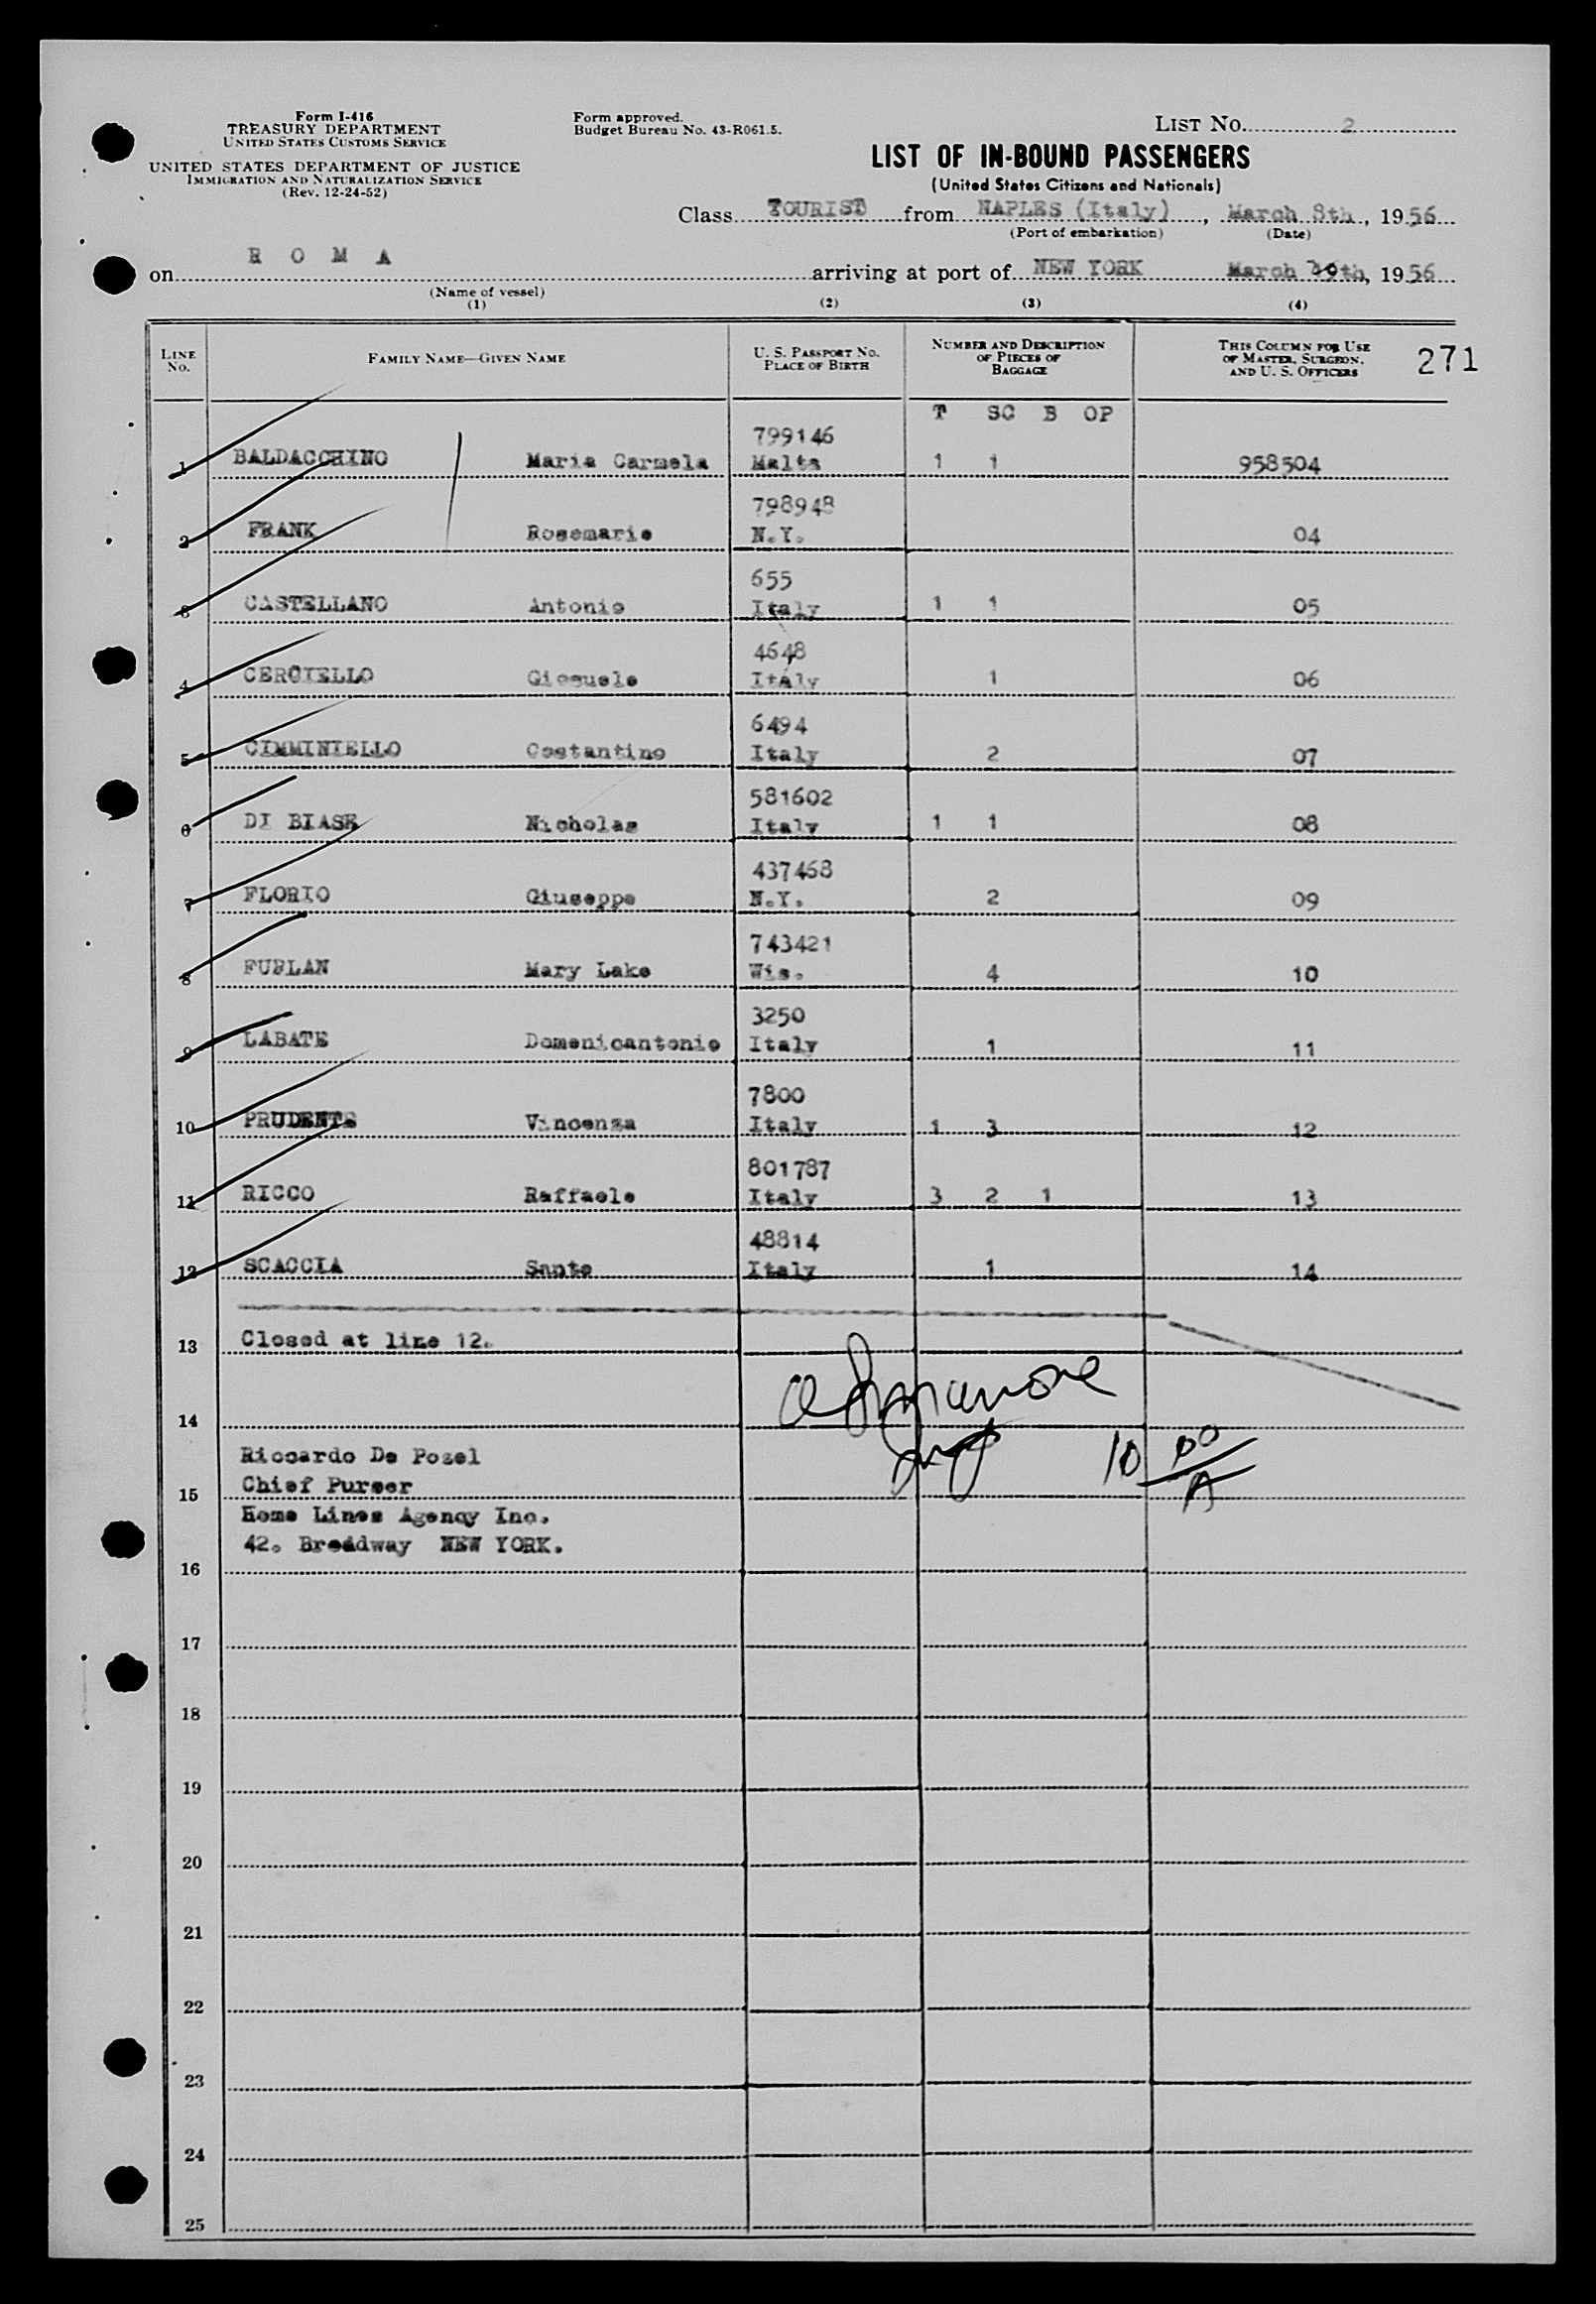 Form I-416
TREASURY DEPARTMENT
UNITED STATES CUSTOMS SERVICE
UNITED STATES DEPARTMENT OF JUSTICE
IMMIGRATION AND NATURALIZATION SERVICE
(Rev. 12-24-52)
Form approved.
Budget Bureau No. 43-R061.5.
LIST NO. 2
LIST OF IN-BOUND PASSENGERS
(United States Citizens and Nationals)
Class TOURIST from NAPLES (Italy), March 8th, 1956
(Port of embarkation) (Date)
on R O M A arriving at port of NEW YORK March th, 1956
(Name of vessel)
(1) (2) (3) (4)
LINE NO. FAMILY NAME—GIVEN NAME U. S. PASSPORT NO. PLACE OF BIRTH NUMBER AND DESCRIPTION OF PIECES OF BAGGAGE THIS COLUMN FOR USE OF MASTER, SURGEON, AND U. S. OFFICERS 271
T SC B OP
799146
1 BALDACCHINO Maria Carmela Malta 1 1 958504
798948
2 FRANK Rosemarie N.Y. 04
655
3 CASTELLANO Antonio Italy 1 1 05
4648
4 CERCIELLO Giosuele Italy 1 06
6494
5 CIMMINIELLO Costantino Italy 2 07
581602
6 DI BIASE Nicholas Italy 1 1 08
437468
7 FLORIO Giuseppe N.Y. 2 09
743421
8 FURLAN Mary Lake Wis. 4 10
3250
9 LABATE Domenicantonio Italy 1 11
7800
10 PRUDENTE Vincenza Italy 1 3 12
801787
11 RICCO Raffaele Italy 3 2 1 13
48814
12 SCACCIA Santo Italy 1 14
13 Closed at line 12.
14
Riccardo De Pozel
15 Chief Purser
10 00/A
Home Lines Agency Inc.
42. Broadway NEW YORK.
16
17
18
19
20
21
22
23
24
25